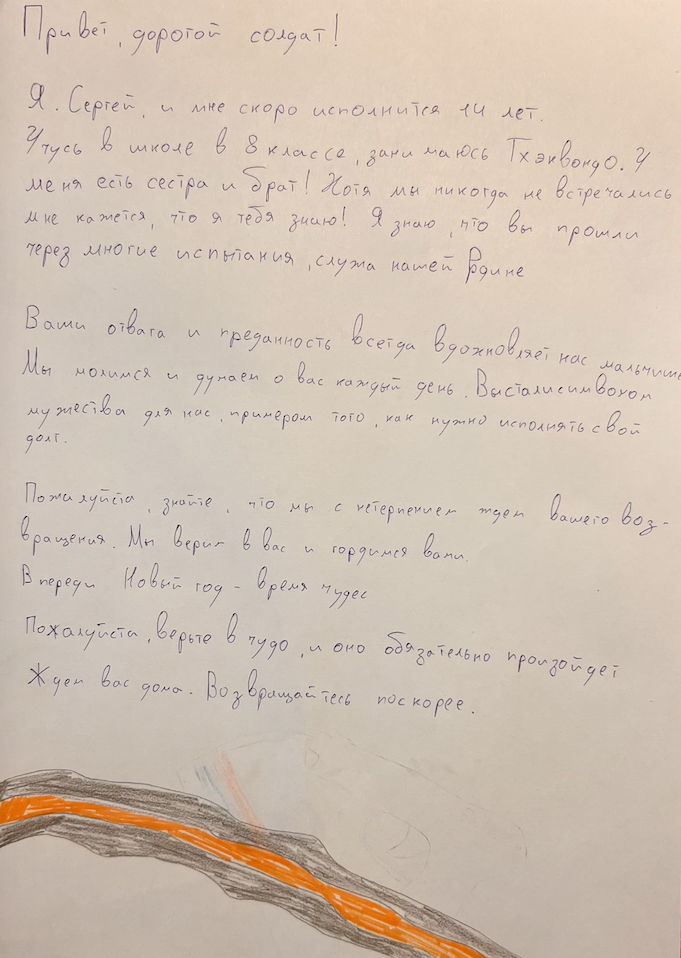 Привет, дорогой солдат!
Я. Сергей, и мне скоро исполнится 14 лет.
Учусь в школе в 8 классе, занимаюсь Тхэквондо. У
меня есть сестра и брат! Хотя мы никогда не встречались
мне кажется, что я тебя знаю! Я знаю, что вы прошли
через многие испытания, служа нашей Рдине
Ваши отвага и преданность всегда вдохновляет нас мальчише
Мы молимся и думаем о вас каждый день. Вы стали символом
мужества для нас, примером того, как нужно исполнять свой
долг.
Пожалуйста, знайте, что мы с нетерпением ждем вашего воз-
вращения. Мы верим в вас и гордимся вами.
Впереди Новый год - время чудес
Пожалуйста, верьте в чудо, и оно обязательно произойдет
Ждем вас дома. Возвращайтесь поскорее.